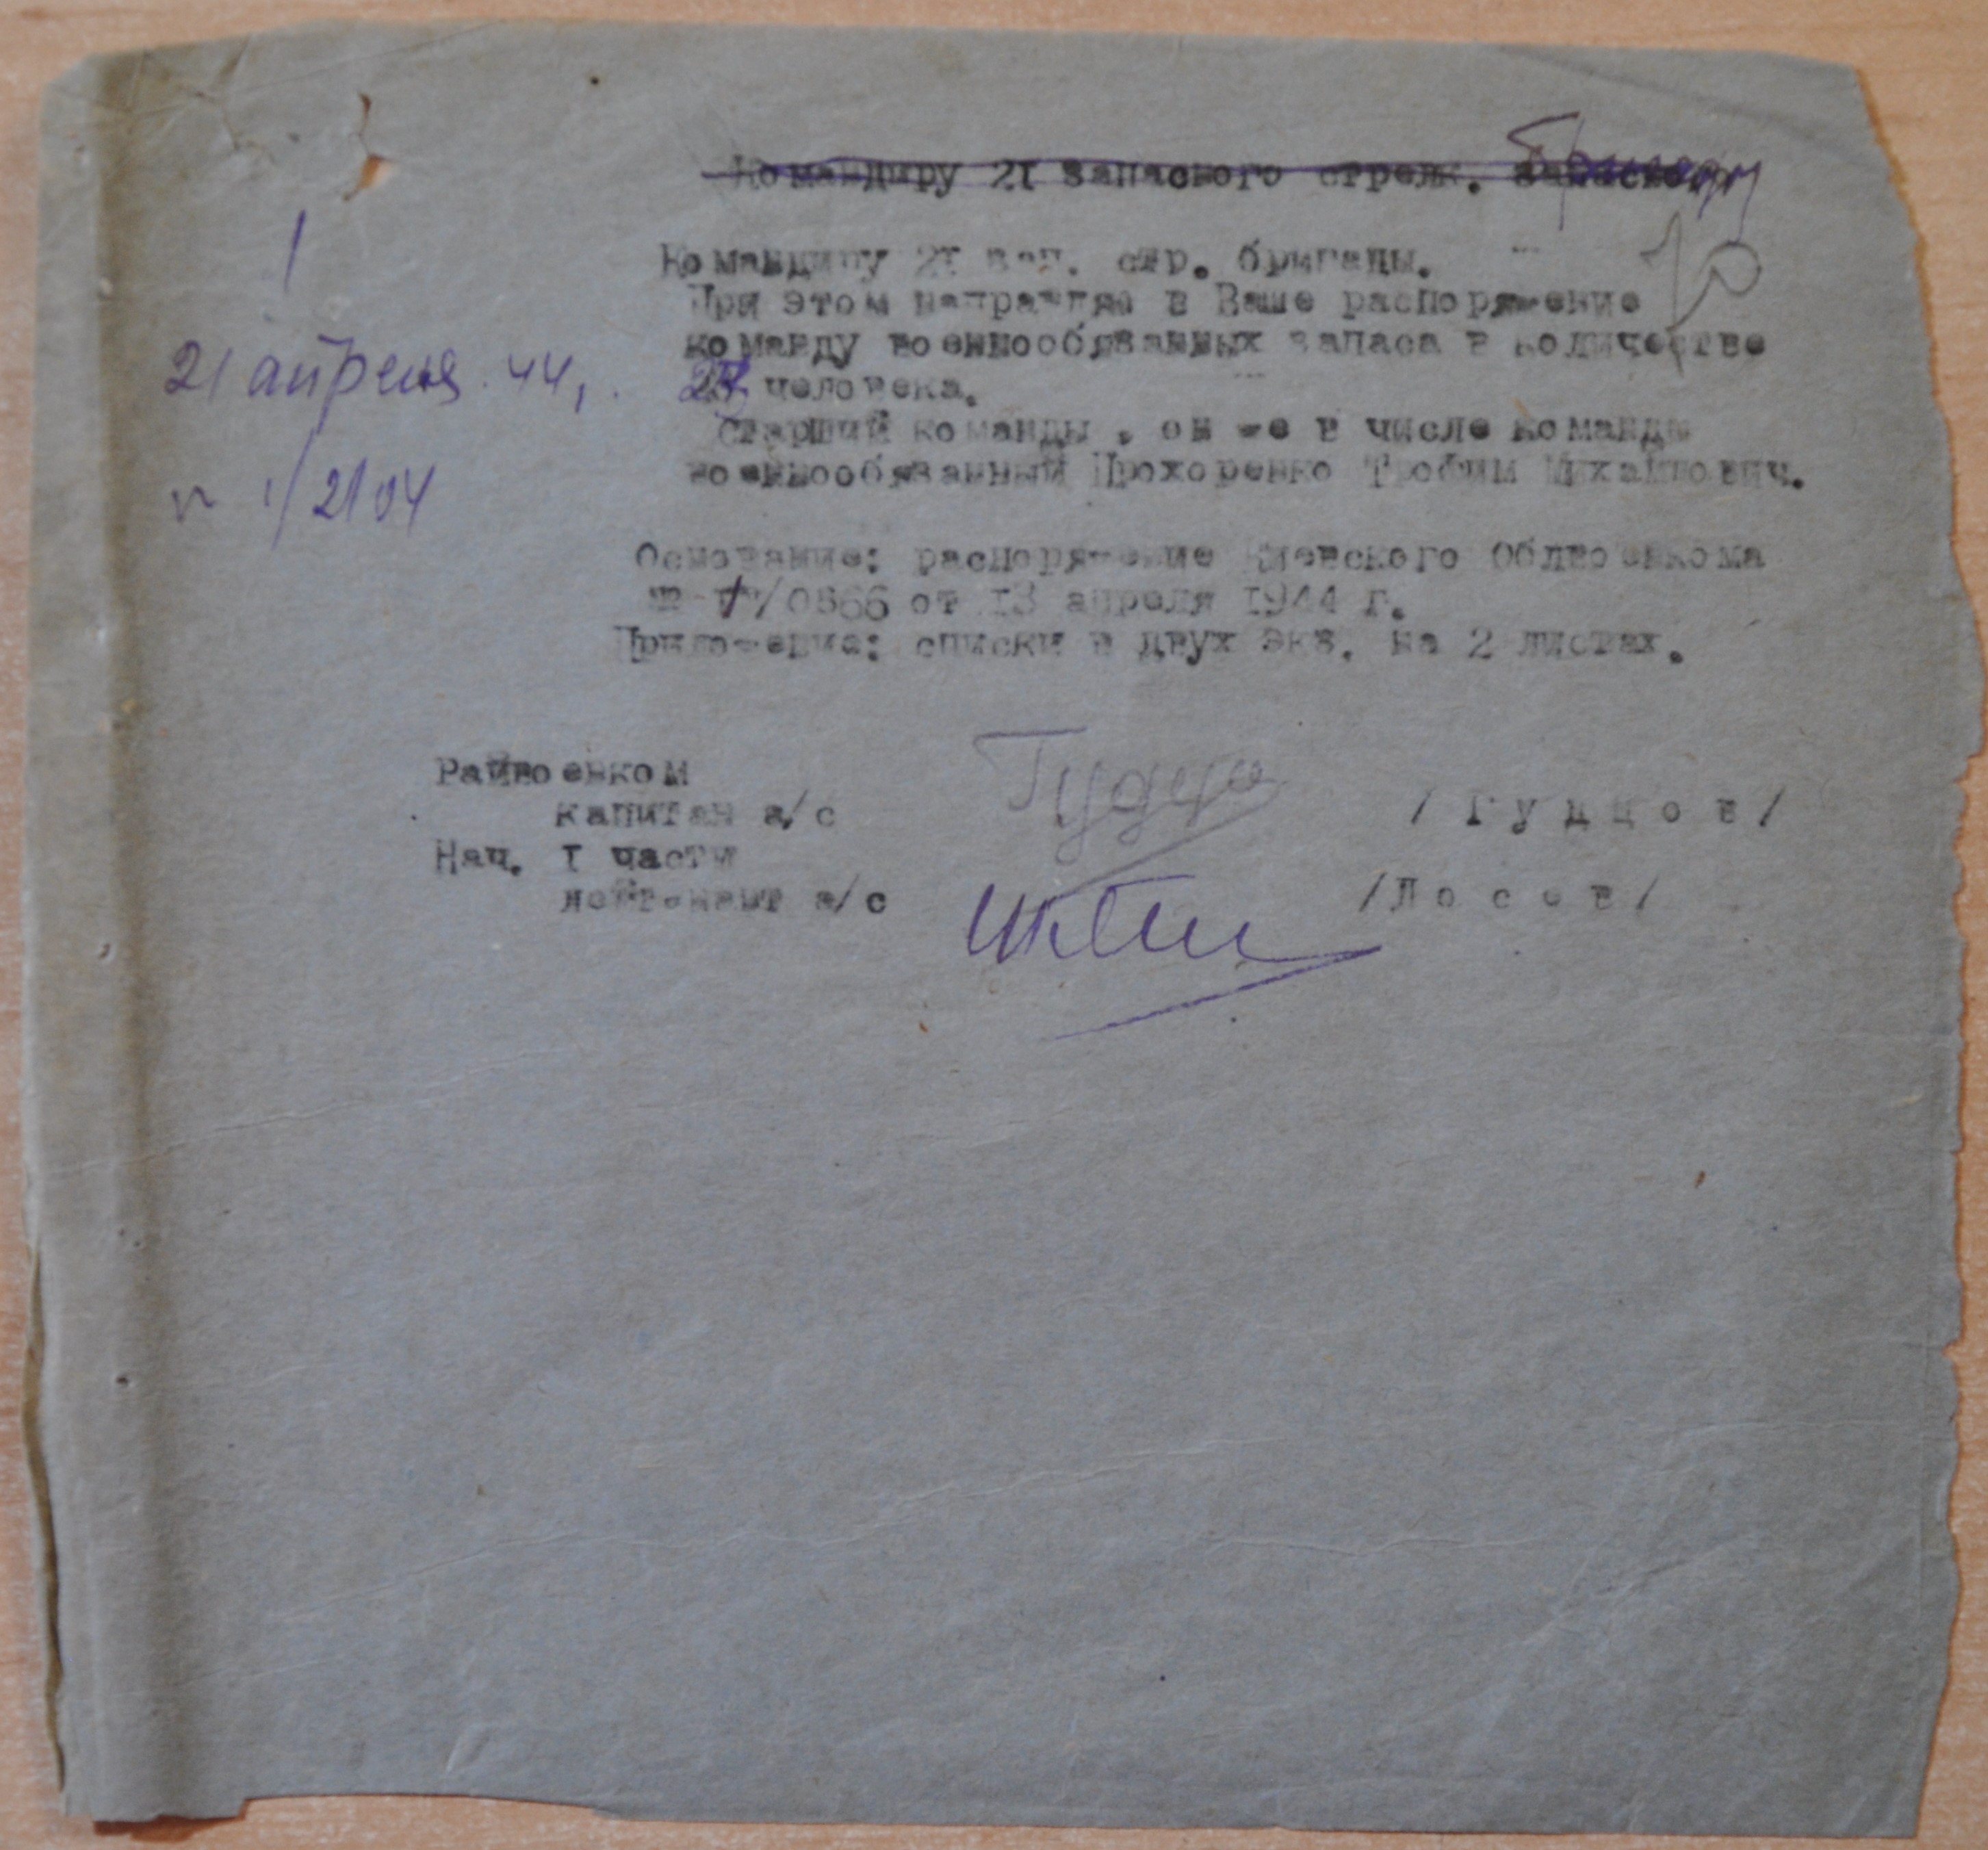 Командиру 21 запасного стрелк.
Командиру 21 зап. стр. бригады.
При этом направляю в Ваше распоряжение
команду военнообязанных запаса в количестве
21 апреля 44,
человека.
Старший команды, он же в числе команды
военнообязанный Прохоренко Трофим Михайлович.
№ 1/2104
Основание: распоряжение Киевского Облвоенкома
/0566 от 13 апреля 1944 г.
Приложение: списки в двух экз. на 2 листах.
Райвоенком
капитан а/с
/Гудцов/
Нач. 1 части
лейтенант а/с
/Лосев/